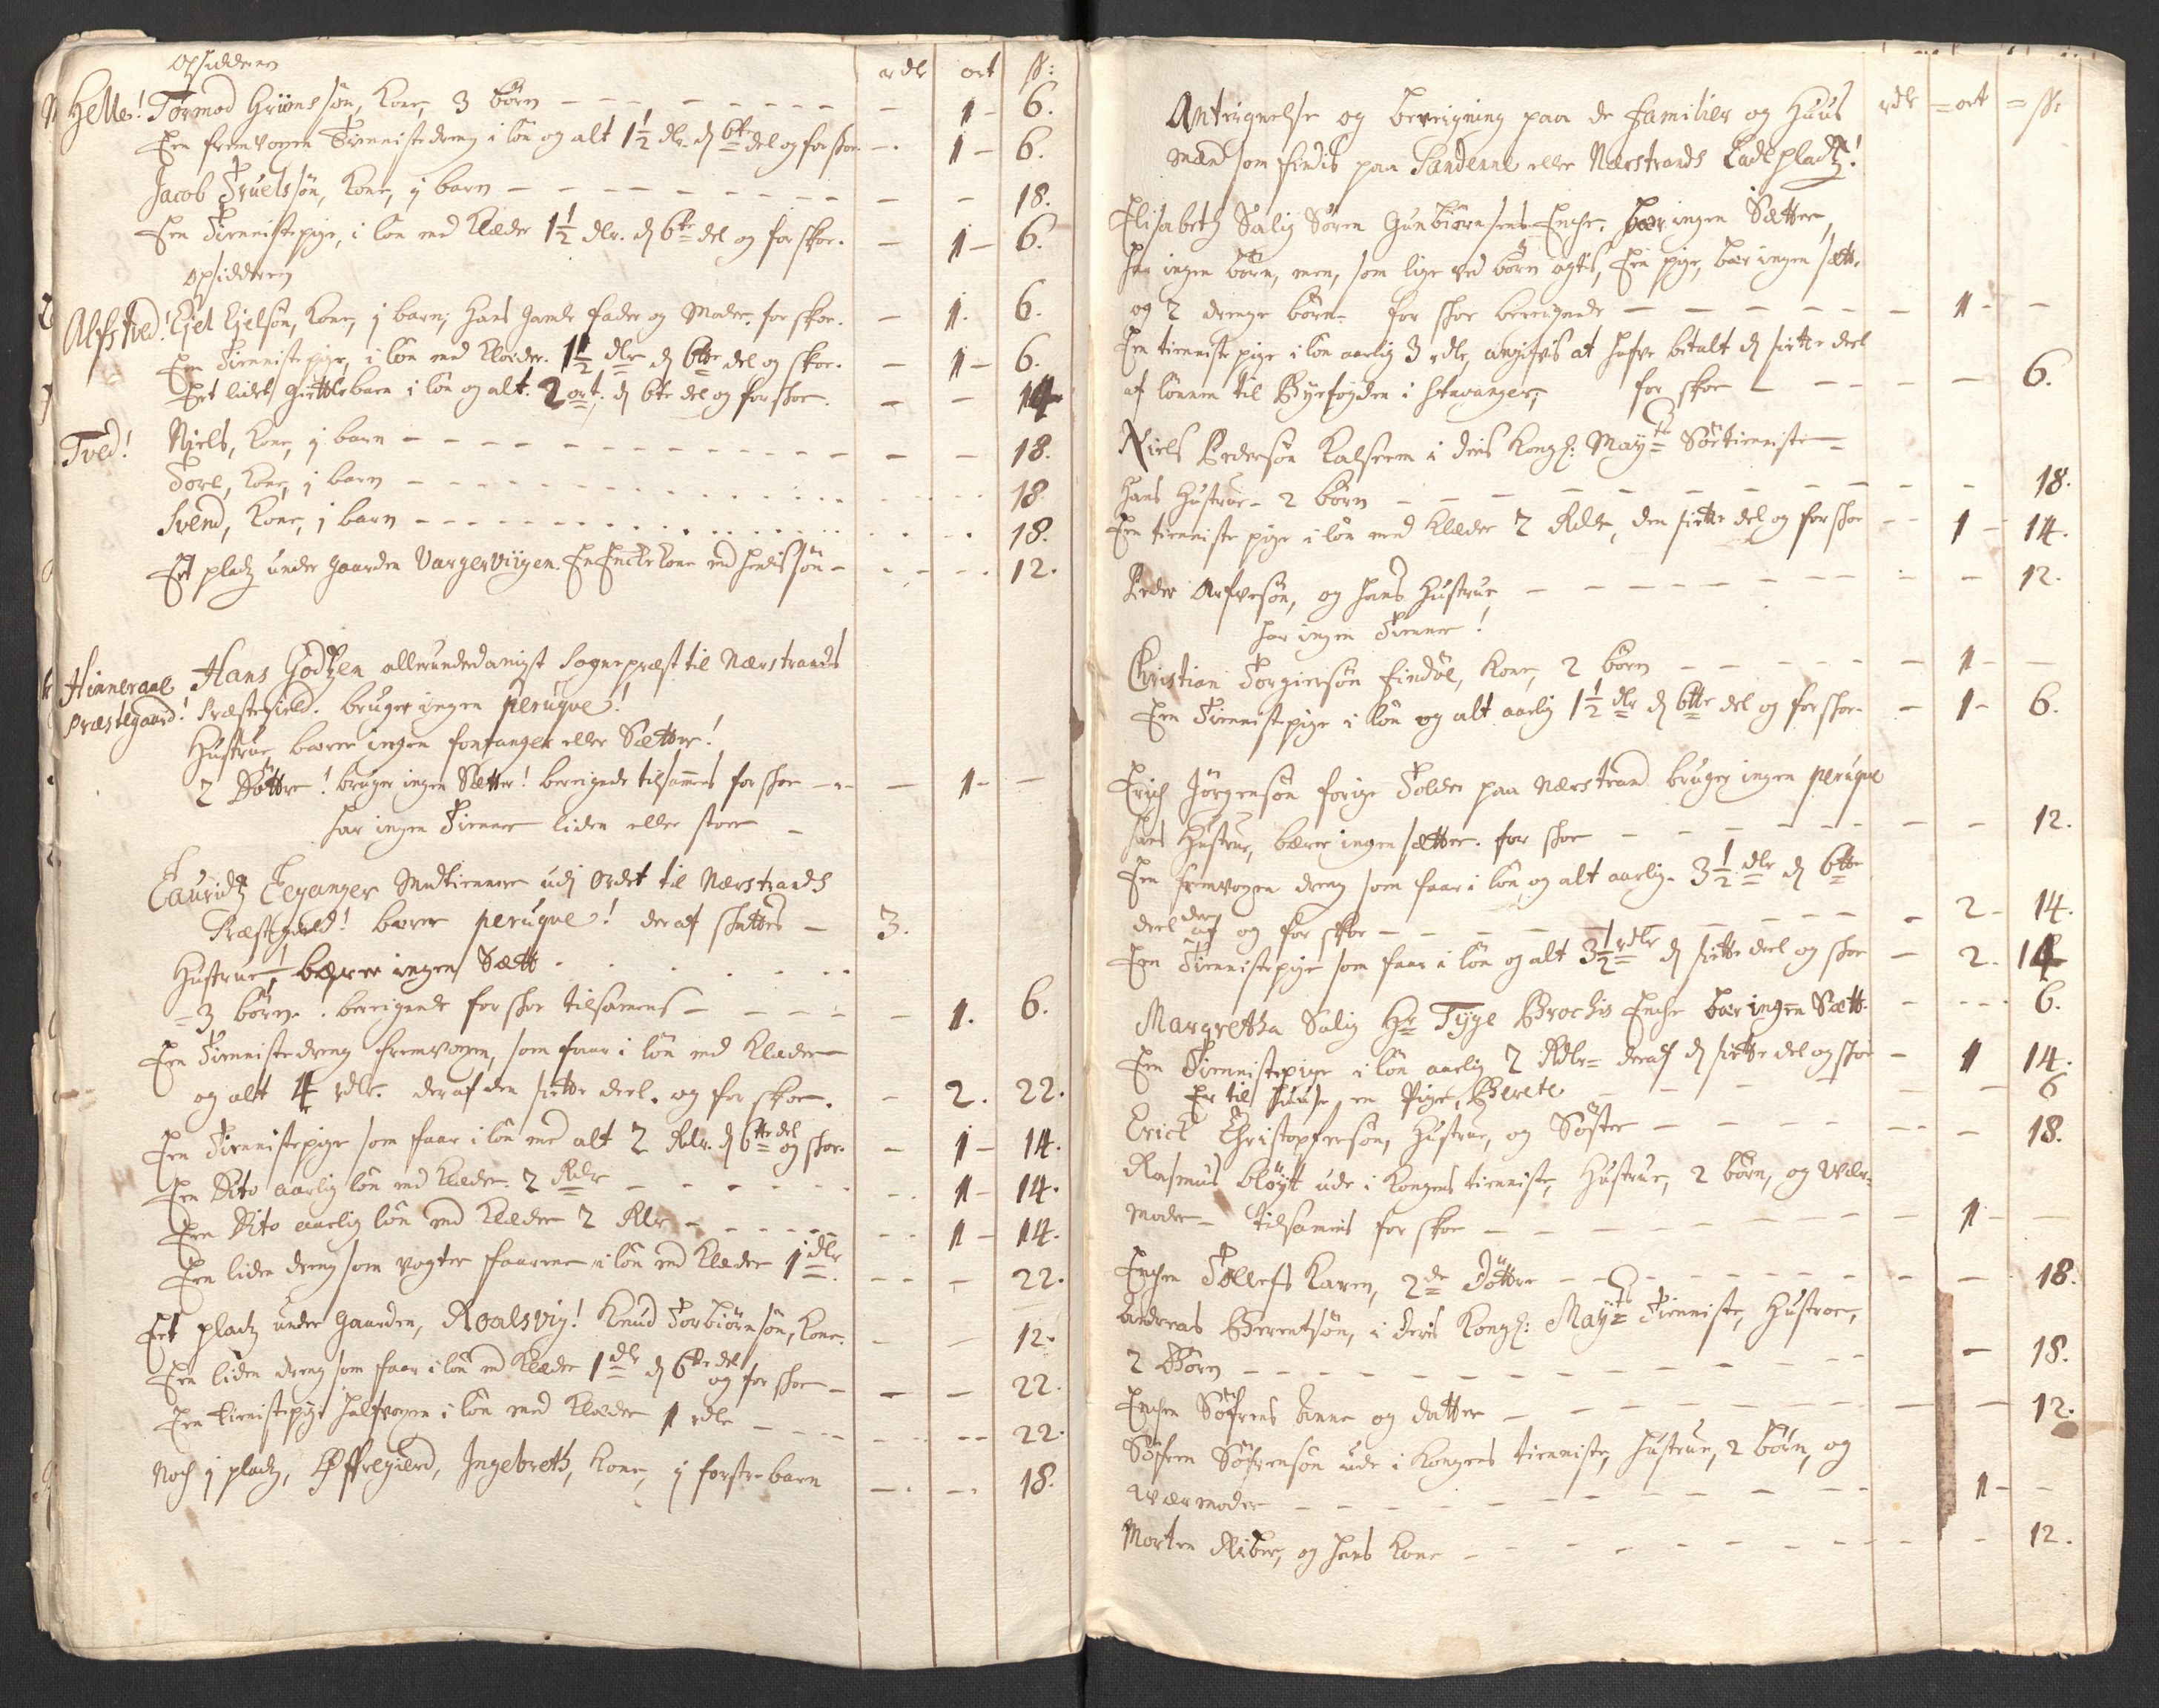 Opsidderen
rdlr ort ß:
Helle! Tormod Grimssøn, Kone, 3 børn - - - - 1 - 6.
Een fremvoxen Tienniste dreng i løn og alt 1½ dlr. d 6te del og for skoe - 1 - 6.
Jacob Truelssøn, Kone, j barn - - - - 18.
Een Tienniste pige, i løn med Klæder 1½ dlr. d 6te del og for skoe. - 1 - 6.
Opsidderen
Alfsted! Ejel Ejelsøn, Kone, j barn, Hans gamle fader og Moder. for skoe. - 1. 6.
Een Tienniste pige, i løn med Klæder. 1½ dlr d 6te del og skoe. - 1 - 6.
Eet lidet giettlebarn i løn og alt. 2 ort. d 6te del og for skoe. - - 14
Tved! Niels, Kone, j barn - - - - 18.
Tore, Kone, j barn - - - - 18
Svend, Kone, j barn - - - - 18.
Eet pladtz under gaarden Vargeviigen. En Encke Kone med hendis søn - - - 12.
Hinneraae Hans Godtzen allerunderdanigst Sognepræst til Nærstrands
Præstegaard! Præstegield. bruger ingen peruque!
Hustrue, bærer ingen fontanger eller Sætter!
2 Døttre! bruger ingen Sætter! beregnede tilsammens for skoe - - 1 - -
har ingen Tienner liden eller stoer -
Lauridtz Leganger Medtiennere udj Ordet til Nærstrands
Præstegield! bærer peruque! deraf skattes - 3.
Hustrue! bærer ingen Sætt - - -
- 3 børn. beregnede for skoe tilsamens - - - 1. 6.
Een Tienniste dreng fremvoxen, som faar i løn med Klæder
og alt 4 rdlr. der af den siette deel. og for skoe. - 2. 22.
Een Tienniste pige som faar i løn med alt 2 Rdlr. d 6te del og skoe. - 1 - 14.
Een Dito aarlig løn med Klæder. 2 Rdlr - - - 1 - 14.
Een Dito aarlig løn med Klæder 2 Rdlr - - - 1 - 14.
Een liden dreng som vogter faarene i løn med Klæder 1 dlr - - - 22.
Eet pladtz under gaarden, Roalsvig! Knud Torbiørnsøn, Kone. - - 12.
Een liden dreng som faar i løn med Klæder 1 dlr d 6te del og for skoe - - - 22.
Een tienistepige halfvoxen i løn med Klæder 1 rdlr - - - 22.
Noch j pladtz, Øffregierd, Ingebreth, Kone, j forstebarn - - 18.
rdlr = ort = ß:
Antegnelse og beregning paa de familier og Huus
mænd som findis paa Sandenne eller Nærstrands Ladepladtz!
Elisabeth Salig Søren Gunbiørnsens Encke. bær ingen Sætter,
har ingen børn, men, som lige ved børn agtis, Een pige, bær ingen sætt.
og 2 drenge børn - for skoe beregnede - - - - 1 - -
Een tienniste pige i løn aarlig 3 rdlr, angifvis at hafve betalt d siette deel
af lønnen til Byefogden i Stavanger, for skoe - - - 6.
Niels Pedersøn Kalseem i deris Kongl: Mayts Søetienniste -
hans Hustrue - 2 børn - - - - 18.
Een tienniste pige i løn med Klæder 2 Rdlr, den siette del og for skoe - - 1 - 14.
Peder Arfvesøn, og hans Hustrue - - - - 12.
har ingen Tienner!
Christian Torgiersøn findøe, Kone, 2 børn - - - 1 - -
Een Tienniste pige i løn og alt aarlig 1½ dlr d 6te del og for skoe - - 1 - 6.
Erich Jørgensøn forige Tolder paa Nærstrand bruger ingen peruque
hans Hustrue, bærer ingen sætter. for skoe - - - - 12.
Een fremvoxen dreng som faar i løn og alt aarlig. 3½ dlr d 6te
deel der af og for skoe - - - - 2 - 14.
Een Tienniste pige som faar i løn og alt 3½ rdlr d siette deel og skoe - 2. 14
Margretha Salig Hr Tyge Brochis Encke bær ingen Sætt - - - 6.
Een Tienniste pige i løn aarlig 2 Rdlr = deraf d siette del og skoe - 1 14.
Er til huuse en Pige, Berete - - - 6
Erick Christophersøn, Hustrue, og Søster - - - - 18.
Rasmus Bløytt ude i Kongens tienniste, Hustrue, 2 børn, og Vær-
moder - tilsamens for skoe - - - - 1 - -
Encken Tollefs Karen, 2de Døttre - - - - 18.
Andreas Berentsøn, i deris Kongl: Mayts Tienniste, Hustroe,
2 Børn - - - - 18.
Encken Søfrens Anne og datter - - - - 12.
Søfren Søfrensøn ude i Kongens tienniste, hustrue, 2 børn, og
Værmoder - - - - 1 - -
Morten Riber, og hans Kone - - - - 12.